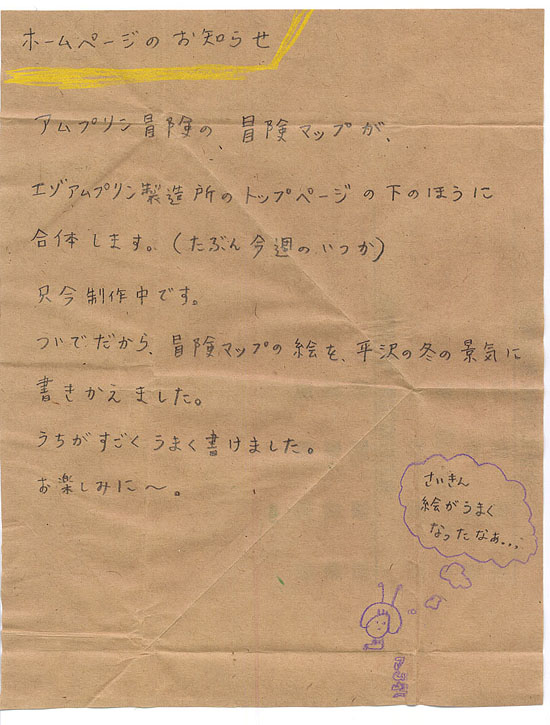 ホームページのお知らせ
アムプリン冒険の、冒険マップが、
エゾアムプリン製造所のトップページの下のほうに
合体します。(たぶん今週のいつか)
只今制作中です。
ついでだから、冒険マップの絵を、平沢の冬の景気に
書きかえました。
うちがすごくうまく書けました。
お楽しみに〜。
さいきん
絵がうまく
なったなぁ...